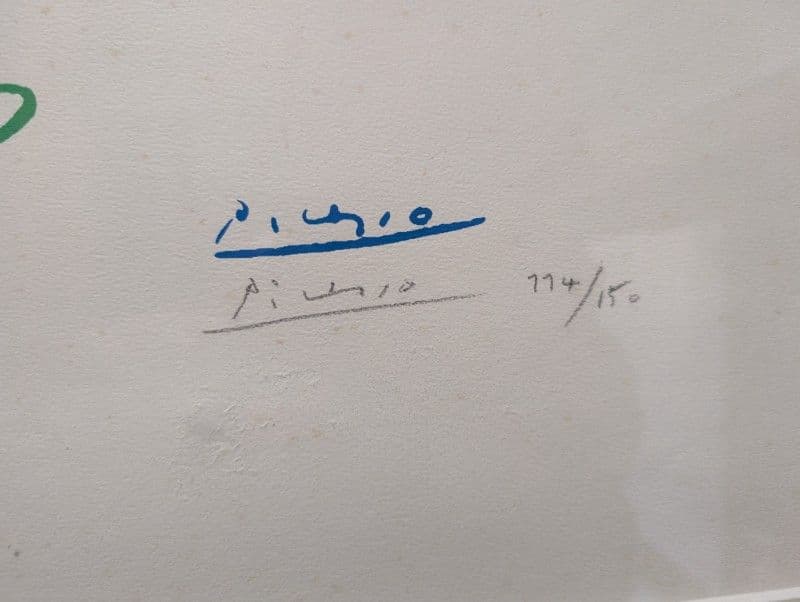 Picasso
Picasso 114/150